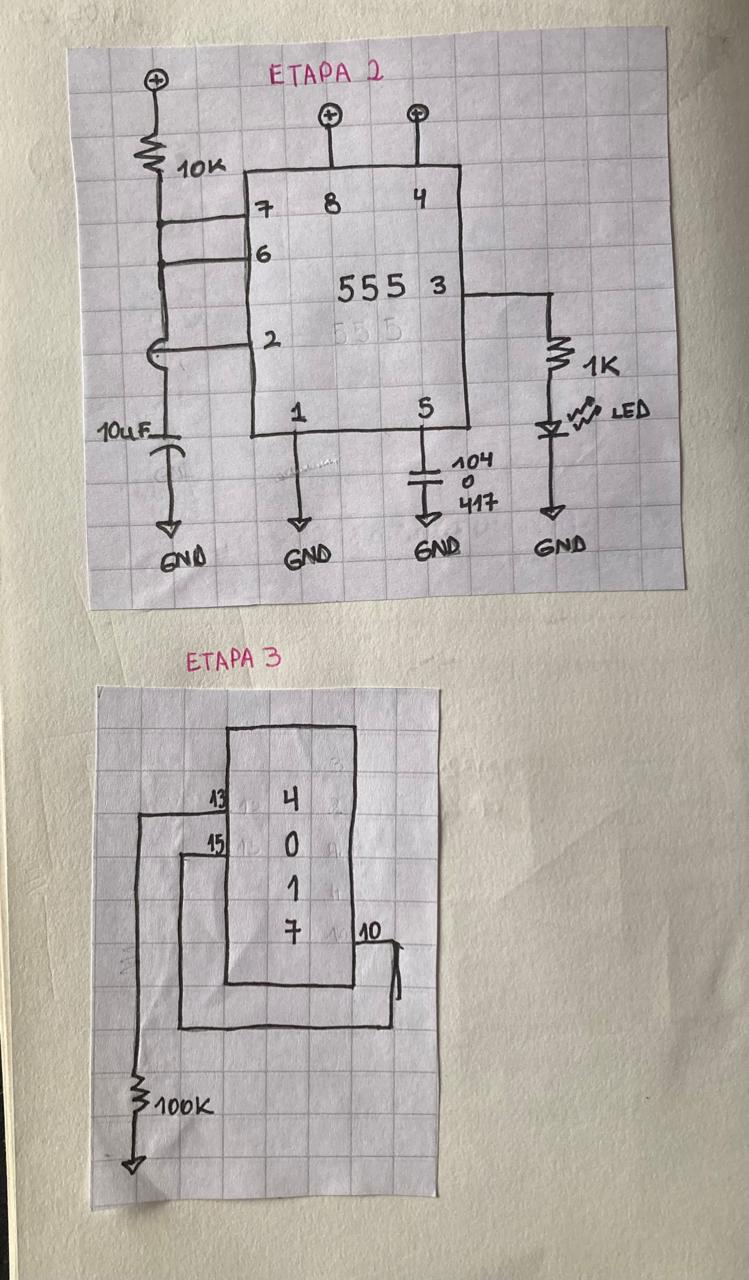 ETAPA 2
10K
7 8 4
6
555 3
555
2
1K
1 5
10uF
LED
104
0
417
GND GND GND GND
ETAPA 3
13 4
15 0
1
7 10
100K